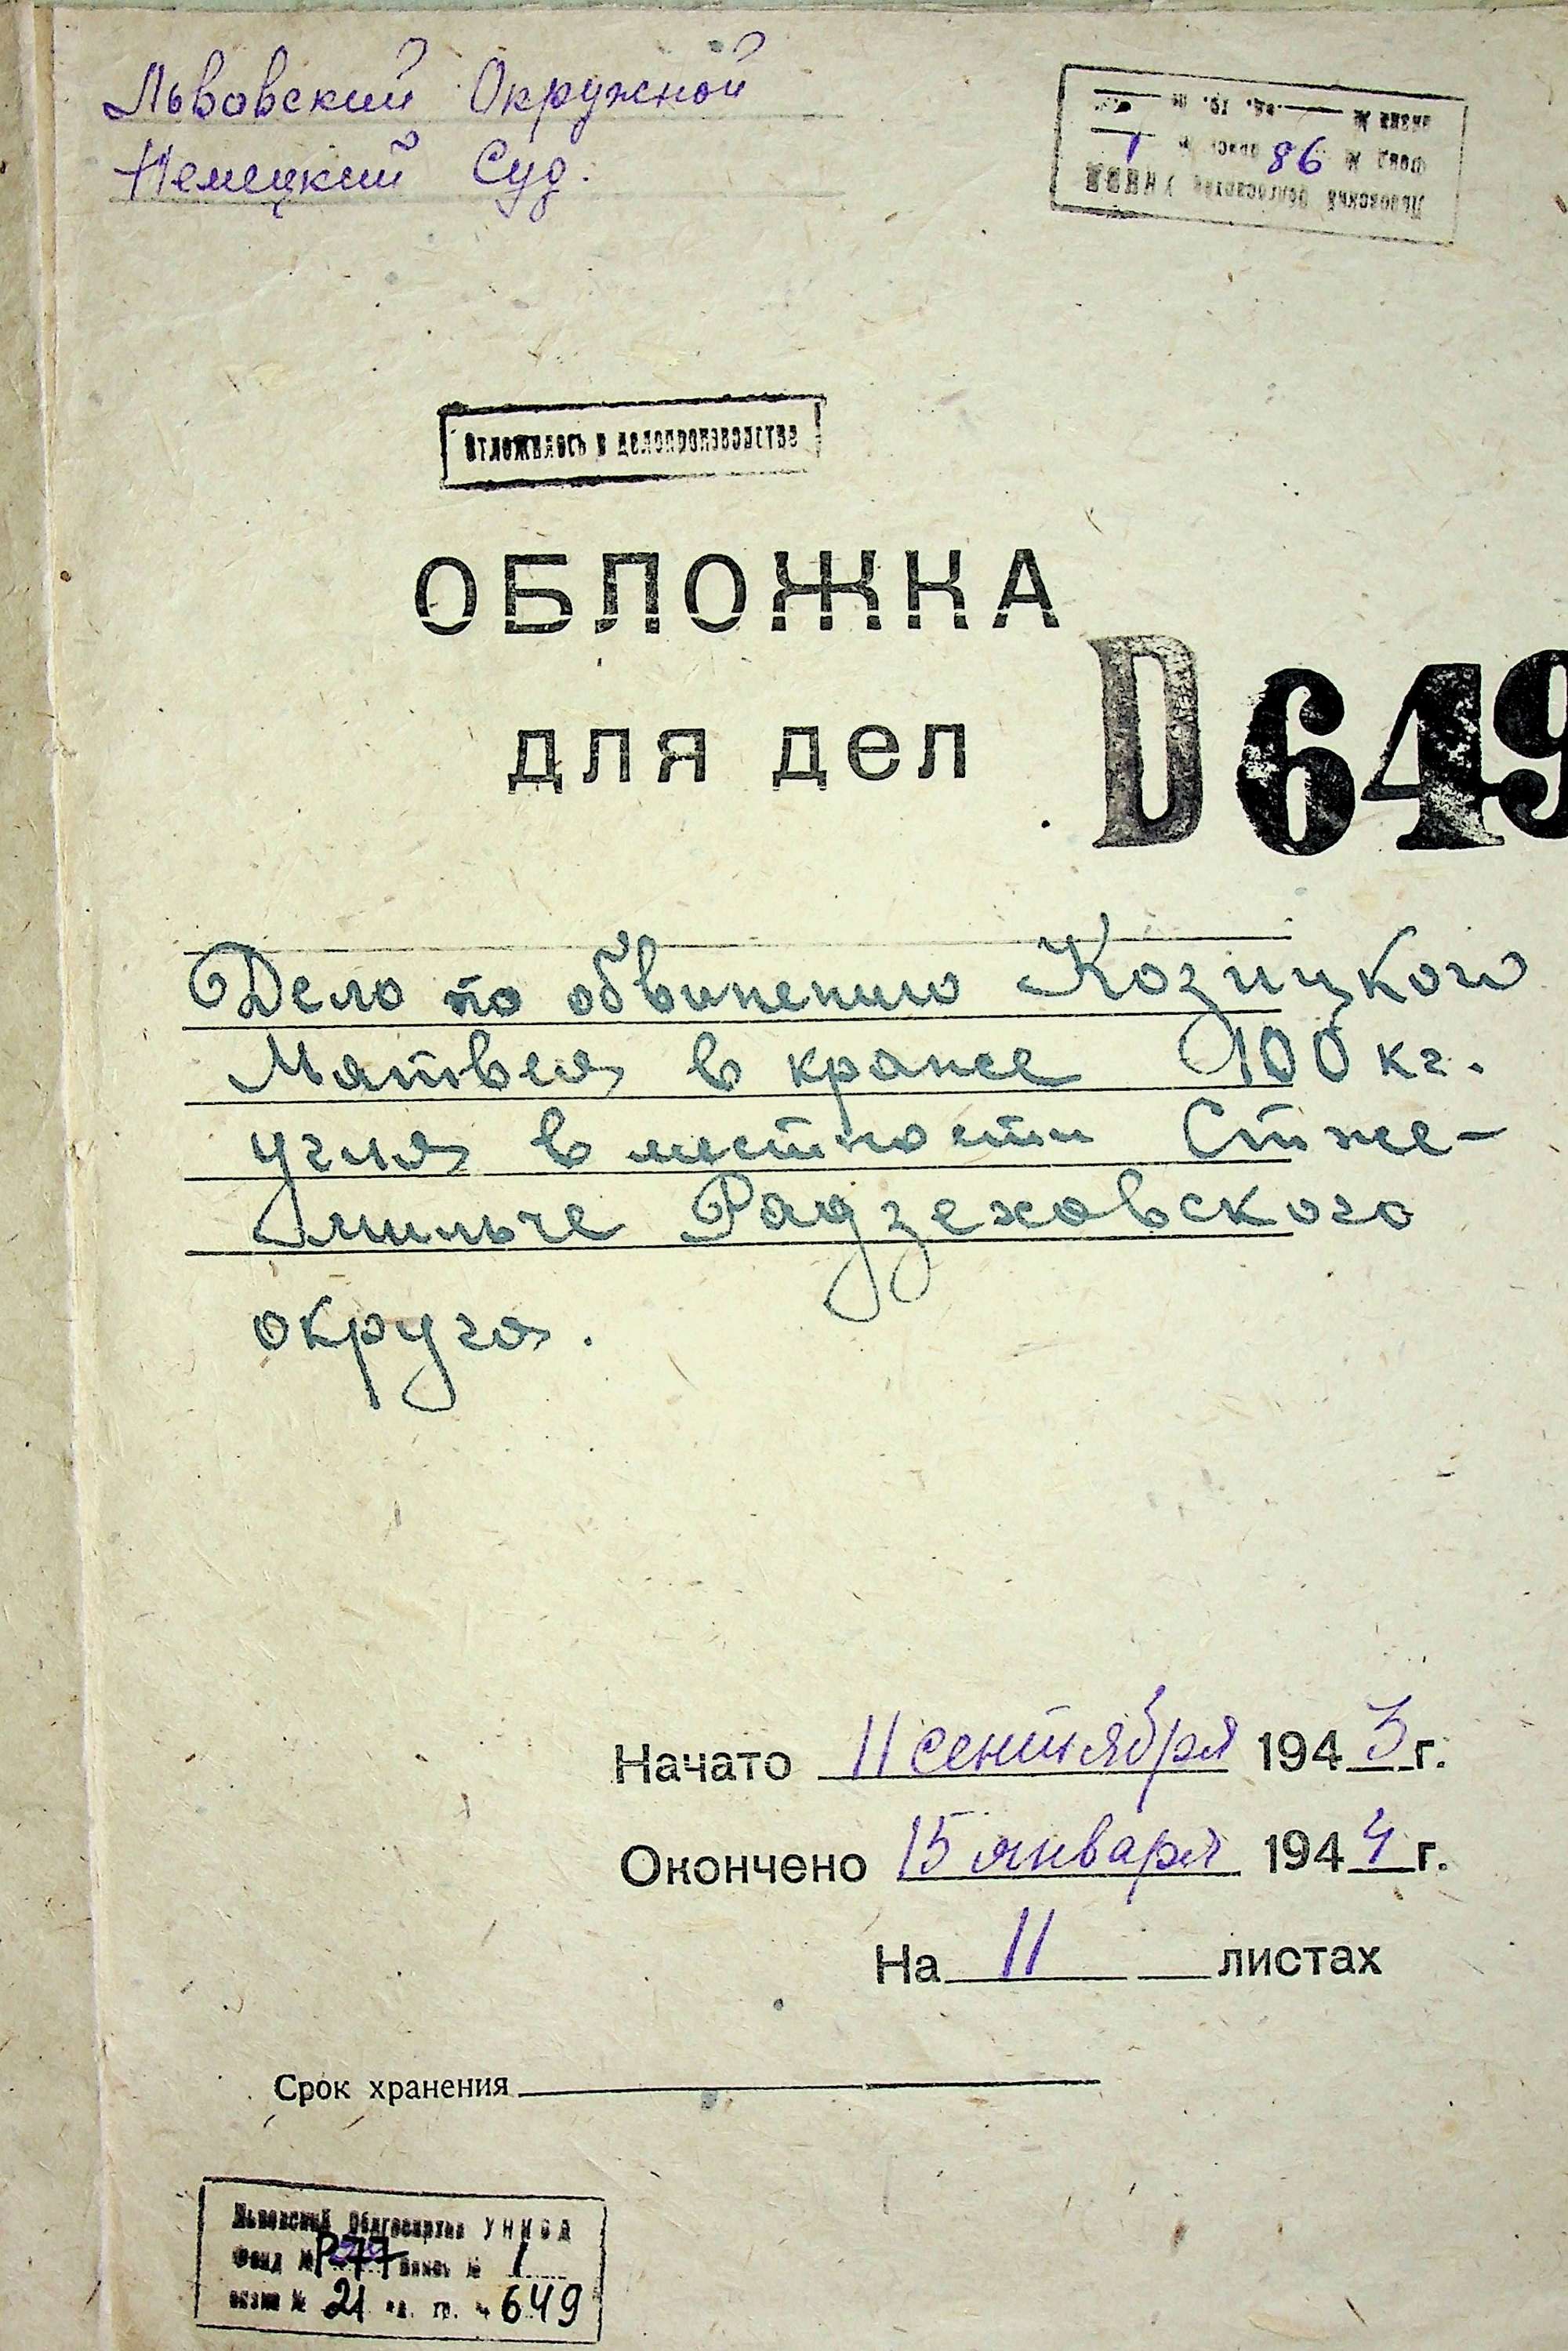 Львовский Окружной
Немецкий Суд.
Львовский Облгосархив УНКВД
Фонд № 86 опись № 1
связка № ед. хр. №
Отложилось в делопроизводстве
ОБЛОЖКА
для дел
D649
Дело по обвинению Козицкого
Матвея в краже 100 кг.
угля в местности Стже-
мильче Радзеховского
округа.
Начато 11 сентября 1943 г.
Окончено 15 января 1944 г.
На 11 листах
Срок хранения
Львовский Облгосархив УНКВД
Фонд № Р-77 опись № 1
связка № 21 ед. хр. № 649